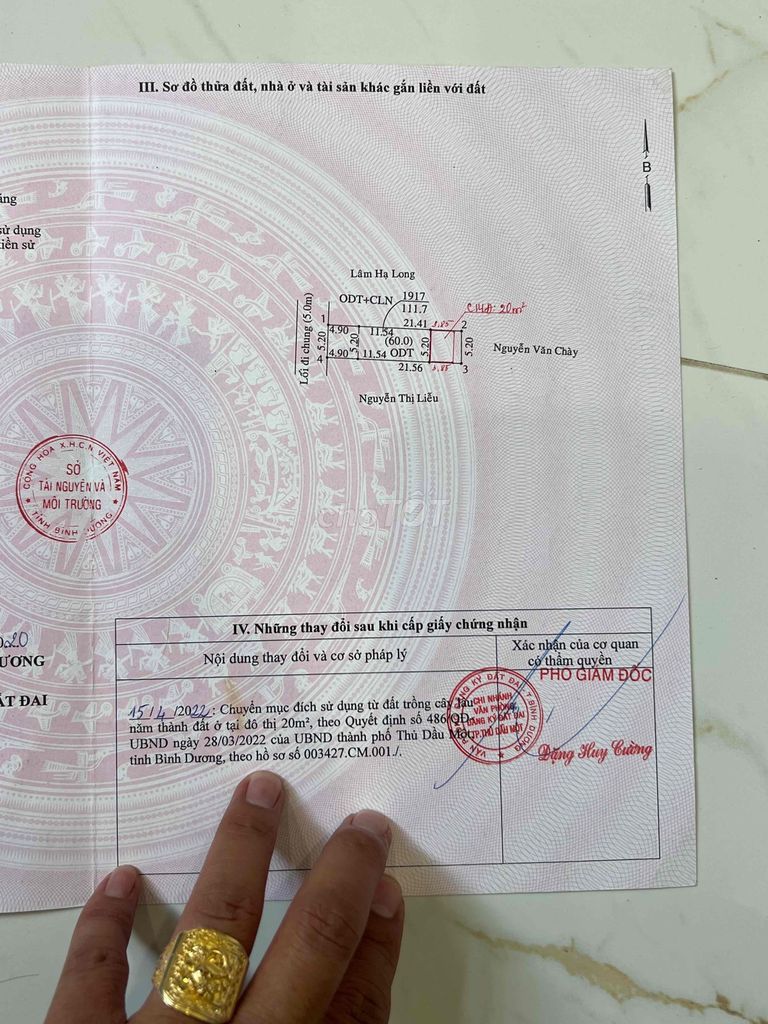 III. Sơ đồ thửa đất, nhà ở và tài sản khác gắn liền với đất
B
sử dụng
tiền sử
Lâm Hạ Long
ODT+CLN 1917
111.7
CMĐ: 20m²
Lối đi chung (5.0m)
1
4.90
11.54
21.41
3.85
2
5.20
5.20
(60.0)
5.20
5.20
Nguyễn Văn Chày
4
4.90
11.54
ODT
21.56
3.85
3
Nguyễn Thị Liễu
CỘNG HÒA X.H.C.N VIỆT NAM
SỞ
TÀI NGUYÊN VÀ
MÔI TRƯỜNG
TỈNH BÌNH DƯƠNG
chợTỐT
020
ƯƠNG
ẤT ĐAI
IV. Những thay đổi sau khi cấp giấy chứng nhận
Nội dung thay đổi và cơ sở pháp lý
Xác nhận của cơ quan
có thẩm quyền
PHÓ GIÁM ĐỐC
15/4/2022: Chuyển mục đích sử dụng từ đất trồng cây lâu
năm thành đất ở tại đô thị 20m², theo Quyết định số 486/QĐ-
UBND ngày 28/03/2022 của UBND thành phố Thủ Dầu Một,
tỉnh Bình Dương, theo hồ sơ số 003427.CM.001./.
CHI NHÁNH
VĂN PHÒNG
ĐĂNG KÝ ĐẤT ĐAI
TP.THỦ DẦU MỘT
Đặng Huy Cường